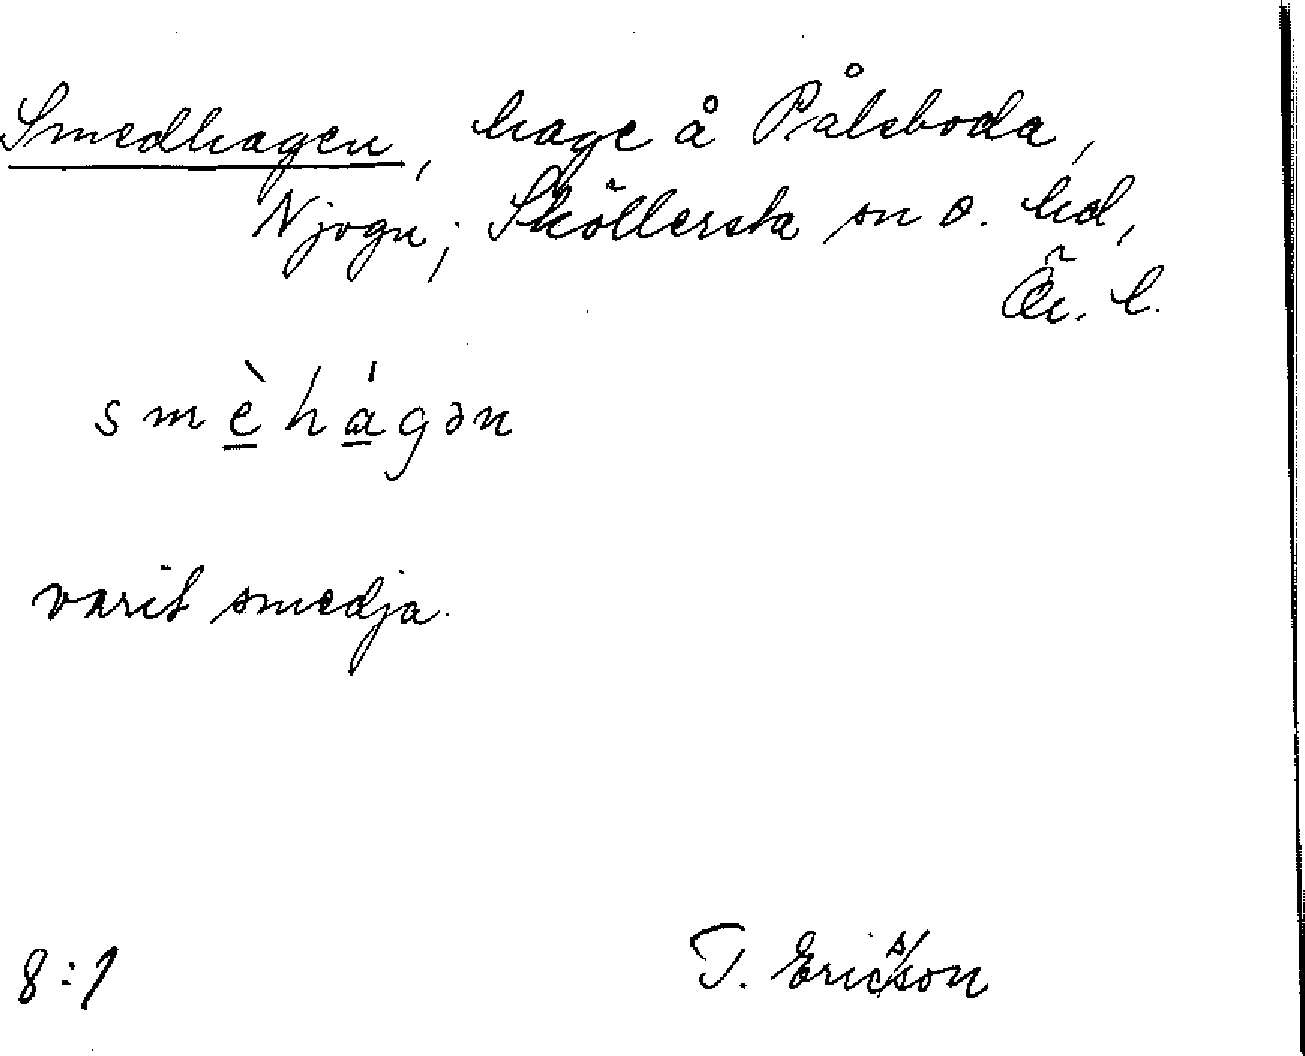 Smedhagen, hage å Pålsboda,
Njogn; Sköllersta sn o. hd,
Ör. l.
smèhágən
varit smedja.
8:1 T. Ericsson